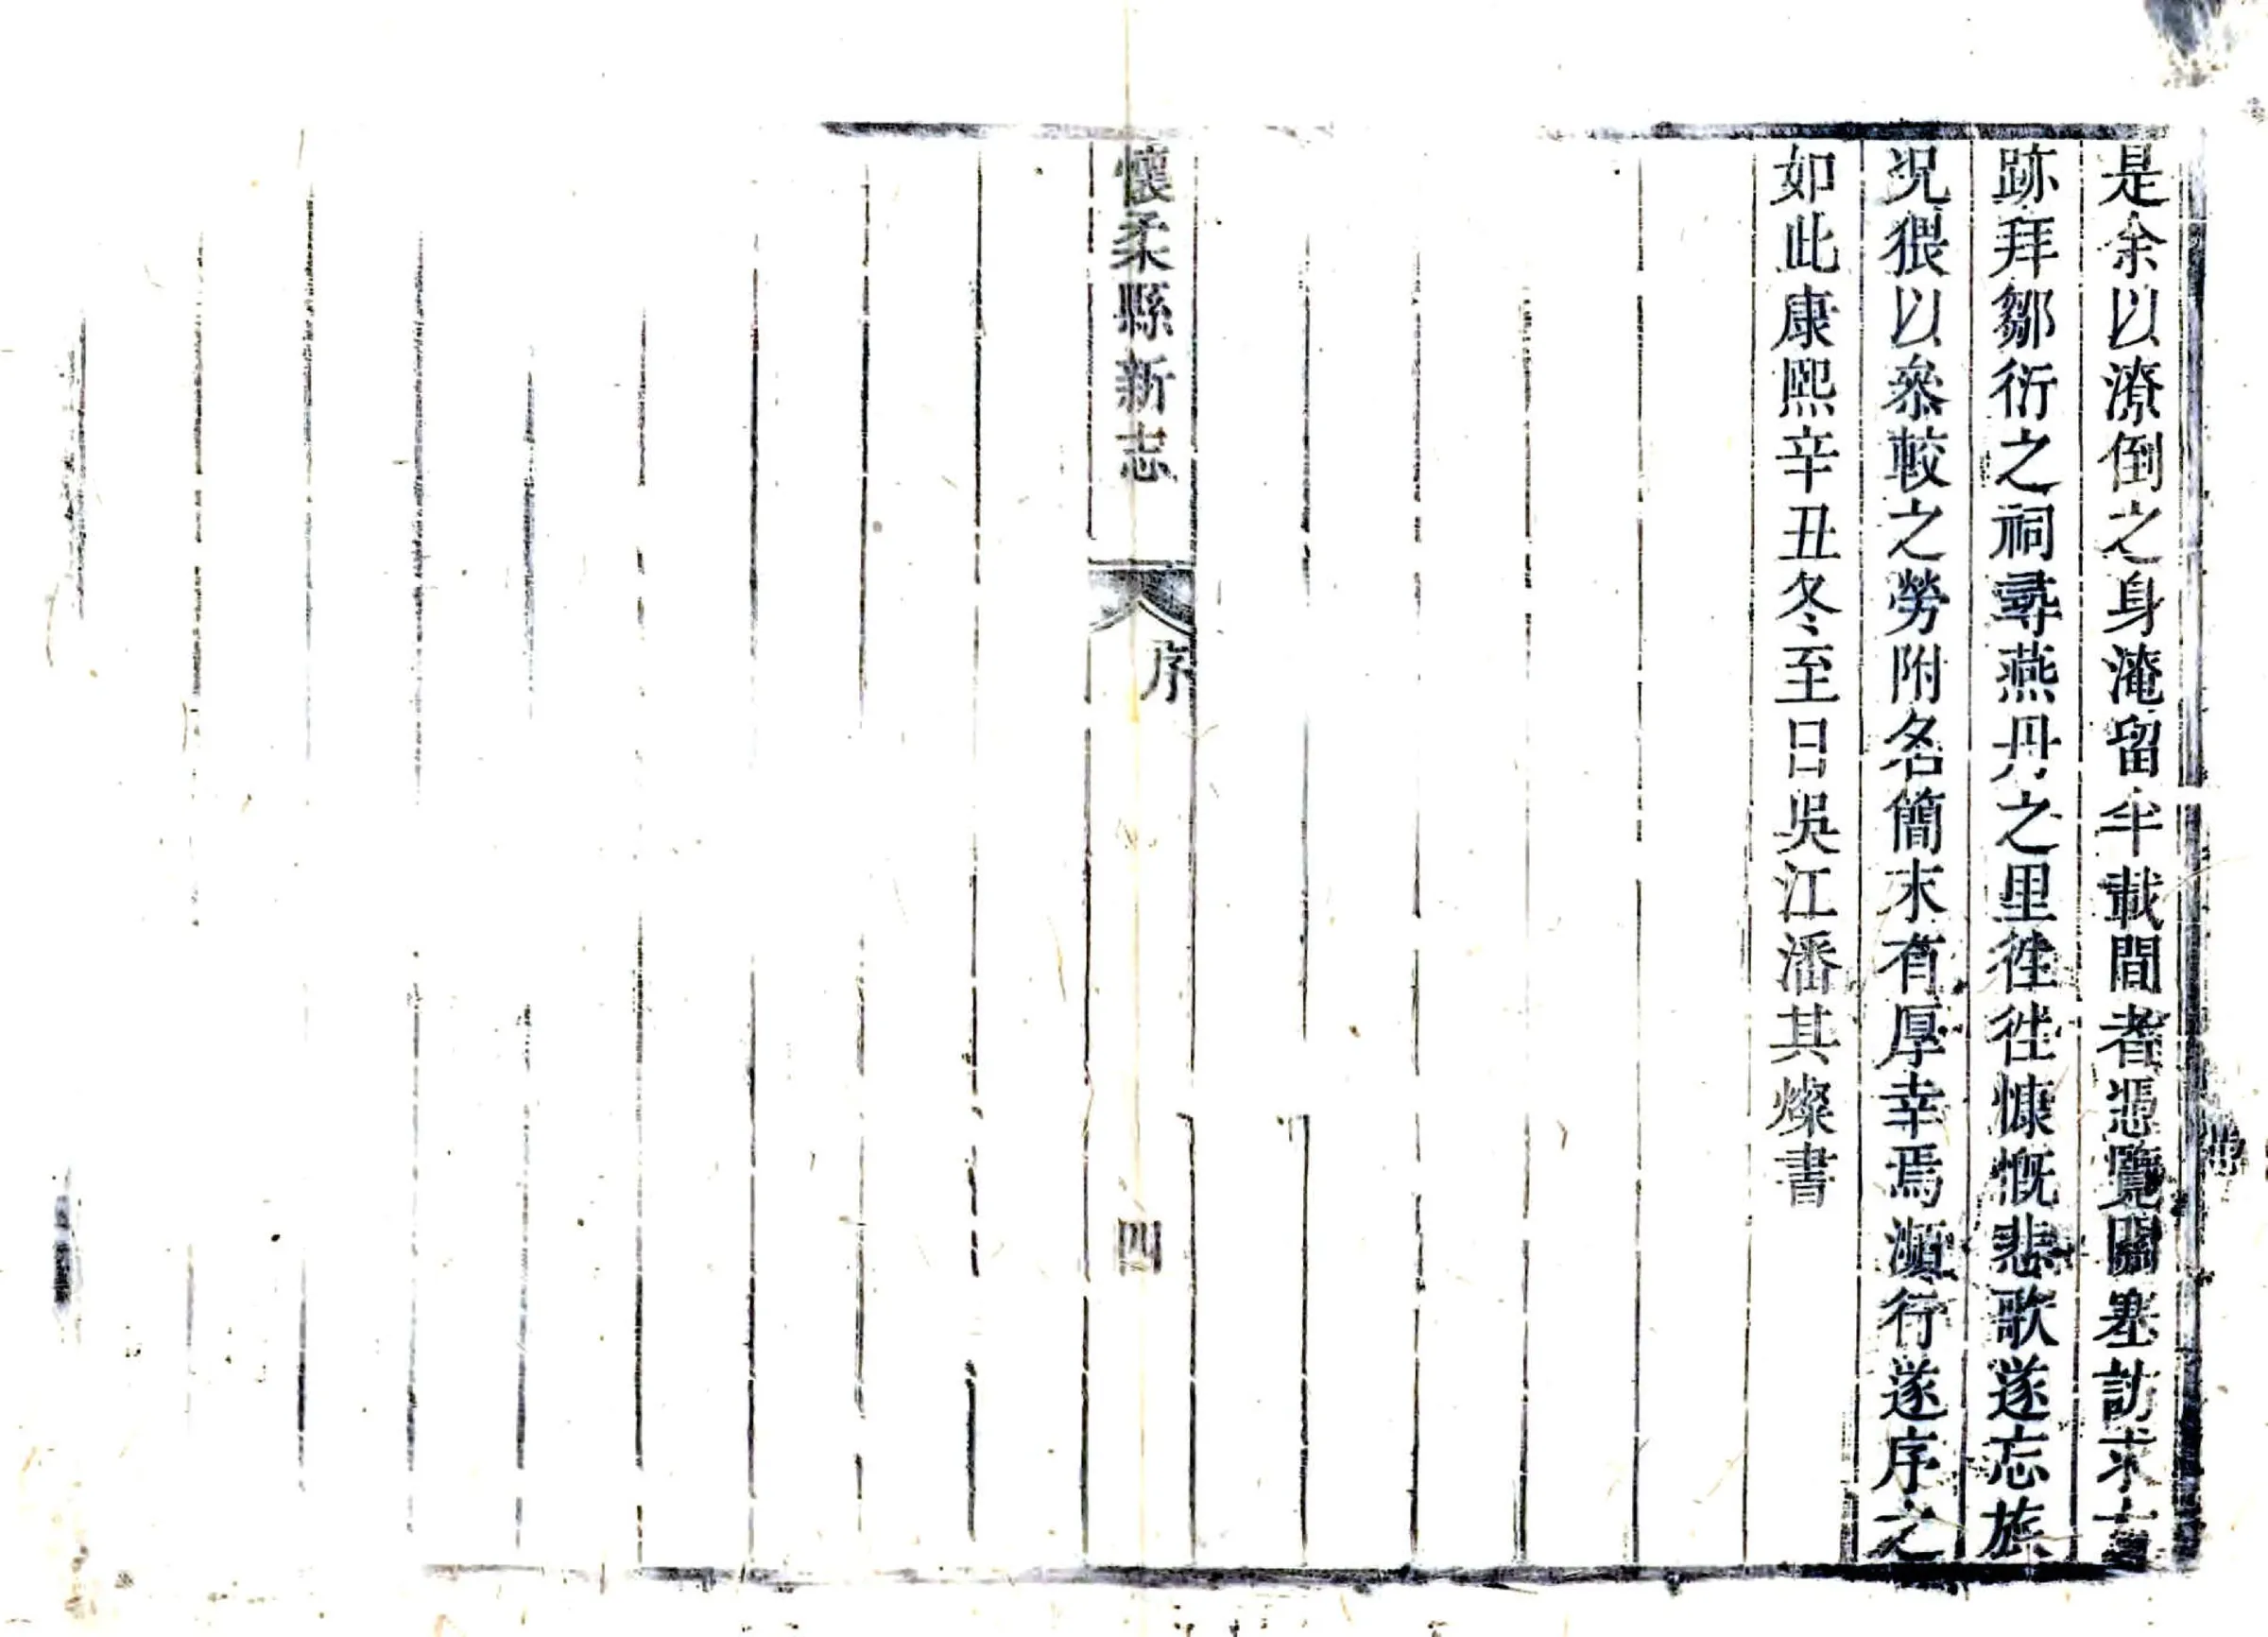 是余以潦倒之身淹留半載間者憑覽關塞訪求古
跡拜鄒衍之祠尋燕丹之里徃徃慷慨悲歌遂忘旅
况猥以叅較之勞附名簡末有厚幸焉瀕行遂序之
如此康熙辛丑冬至日吳江潘其燦書
懷柔縣新志
序
四